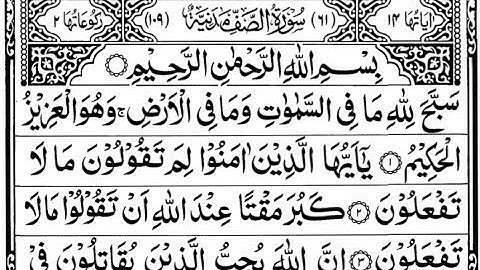 اٰیَاتُهَا ۱۴ (۶۱) سُوْرَةُ الصَّفِّ مَدَنِیَّةٌ (۱۰۹) رُكُوْعَاتُهَا ۲
بِسْمِ اللّٰهِ الرَّحْمٰنِ الرَّحِیْمِ
سَبَّحَ لِلّٰهِ مَا فِی السَّمٰوٰتِ وَمَا فِی الْاَرْضِ ۚ وَهُوَ الْعَزِیْزُ
الْحَكِیْمُ ۱ یٰۤاَیُّهَا الَّذِیْنَ اٰمَنُوْا لِمَ تَقُوْلُوْنَ مَا لَا
تَفْعَلُوْنَ ۲ كَبُرَ مَقْتًا عِنْدَ اللّٰهِ اَنْ تَقُوْلُوْا مَا لَا
تَفْعَلُوْنَ ۳ اِنَّ اللّٰهَ یُحِبُّ الَّذِیْنَ یُقَاتِلُوْنَ فِیْ